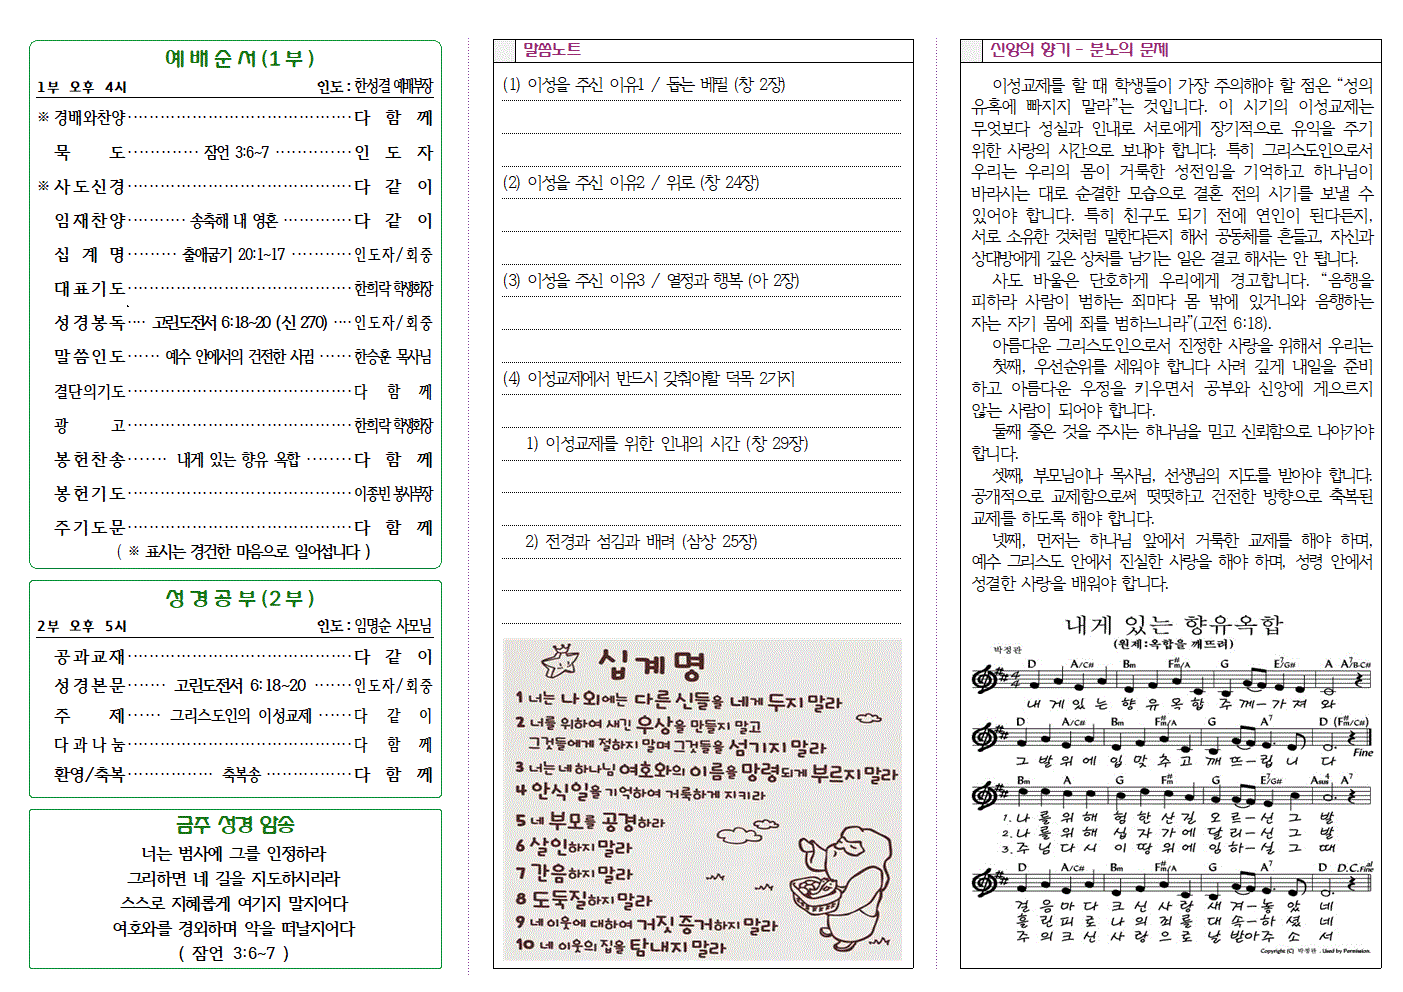 예배순서(1부)
1부 오후 4시 인도 : 한성결 예배부장
※ 경배와찬양 ········ 다 함 께
묵 도 ········ 잠언 3:6~7 ········ 인 도 자
※ 사도신경 ········ 다 같 이
임재찬양 ········ 송축해 내 영혼 ········ 다 같 이
십 계 명 ········ 출애굽기 20:1~17 ········ 인도자/회중
대표기도 ········ 한희락 학생회장
성경봉독 ···· 고린도전서 6:18~20 (신 270) ···· 인도자/회중
말씀인도 ······ 예수 안에서의 건전한 사귐 ······ 한승훈 목사님
결단의기도 ········ 다 함 께
광 고 ········ 한희락 학생회장
봉헌찬송 ······· 내게 있는 향유 옥합 ········ 다 함 께
봉헌기도 ········ 이종빈 봉사부장
주기도문 ········ 다 함 께
( ※ 표시는 경건한 마음으로 일어섭니다 )
성경공부(2부)
2부 오후 5시 인도 : 임명순 사모님
공과교재 ········ 다 같 이
성경본문 ······· 고린도전서 6:18~20 ······· 인도자/회중
주 제 ······ 그리스도인의 이성교제 ······ 다 같 이
다과나눔 ········ 다 함 께
환영/축복 ········ 축복송 ········ 다 함 께
금주 성경 암송
너는 범사에 그를 인정하라
그리하면 네 길을 지도하시리라
스스로 지혜롭게 여기지 말지어다
여호와를 경외하며 악을 떠날지어다
( 잠언 3:6~7 )
말씀노트
(1) 이성을 주신 이유1 / 돕는 베필 (창 2장)
(2) 이성을 주신 이유2 / 위로 (창 24장)
(3) 이성을 주신 이유3 / 열정과 행복 (아 2장)
(4) 이성교제에서 반드시 갖춰야할 덕목 2가지
1) 이성교제를 위한 인내의 시간 (창 29장)
2) 전경과 섬김과 배려 (삼상 25장)
십계명
1 너는 나 외에는 다른 신들을 네게 두지 말라
2 너를 위하여 새긴 우상을 만들지 말고
그것들에게 절하지 말며 그것들을 섬기지 말라
3 너는 네 하나님 여호와의 이름을 망령되게 부르지 말라
4 안식일을 기억하여 거룩하게 지키라
5 네 부모를 공경하라
6 살인하지 말라
7 간음하지 말라
8 도둑질하지 말라
9 네 이웃에 대하여 거짓 증거하지 말라
10 네 이웃의 집을 탐내지 말라
신앙의 향기 - 분노의 문제
이성교제를 할 때 학생들이 가장 주의해야 할 점은 “성의
유혹에 빠지지 말라”는 것입니다. 이 시기의 이성교제는
무엇보다 성실과 인내로 서로에게 장기적으로 유익을 주기
위한 사랑의 시간으로 보내야 합니다. 특히 그리스도인으로서
우리는 우리의 몸이 거룩한 성전임을 기억하고 하나님이
바라시는 대로 순결한 모습으로 결혼 전의 시기를 보낼 수
있어야 합니다. 특히 친구도 되기 전에 연인이 된다든지,
서로 소유한 것처럼 말한다든지 해서 공동체를 흔들고, 자신과
상대방에게 깊은 상처를 남기는 일은 결코 해서는 안 됩니다.
사도 바울은 단호하게 우리에게 경고합니다. “음행을
피하라 사람이 범하는 죄마다 몸 밖에 있거니와 음행하는
자는 자기 몸에 죄를 범하느니라”(고전 6:18).
아름다운 그리스도인으로서 진정한 사랑을 위해서 우리는
첫째, 우선순위를 세워야 합니다 사려 깊게 내일을 준비
하고 아름다운 우정을 키우면서 공부와 신앙에 게으르지
않는 사람이 되어야 합니다.
둘째 좋은 것을 주시는 하나님을 믿고 신뢰함으로 나아가야
합니다.
셋째, 부모님이나 목사님, 선생님의 지도를 받아야 합니다.
공개적으로 교제함으로써 떳떳하고 건전한 방향으로 축복된
교제를 하도록 해야 합니다.
넷째, 먼저는 하나님 앞에서 거룩한 교제를 해야 하며,
예수 그리스도 안에서 진실한 사랑을 해야 하며, 성령 안에서
성결한 사랑을 배워야 합니다.
내게 있는 향유옥합
(원제:옥합을 깨뜨려)
박정관
D A/C# Bm F#m/A G E7/G# A A7/B-C#
내 게 있 는 향 유 옥 합 주 께-가 져 와
D A/C# Bm F#m/A G A7 D (F#m/C#)
Fine
그 발 위 에 입 맞 추 고 깨 뜨-립 니 다
Bm A G F#m G E7/G# Asus4 A7
1.나 를 위 해 험 한 산 길 오 르-신 그 발
2.나 를 위 해 십 자 가 에 달 리-신 그 발
3.주 님 다 시 이 땅 위 에 임 하-실 그 때
D A/C# Bm F#m/A G A7 D D.C. al Fine
걸 음 마 다 크 신 사 랑 새 겨-놓 았 네
흘 린 피 로 나 의 죄 를 대 속-하 셨 네
주 의 크 신 사 랑 으 로 날 받아주 소 서
Copyright (C) 박정관. Used by Permission.